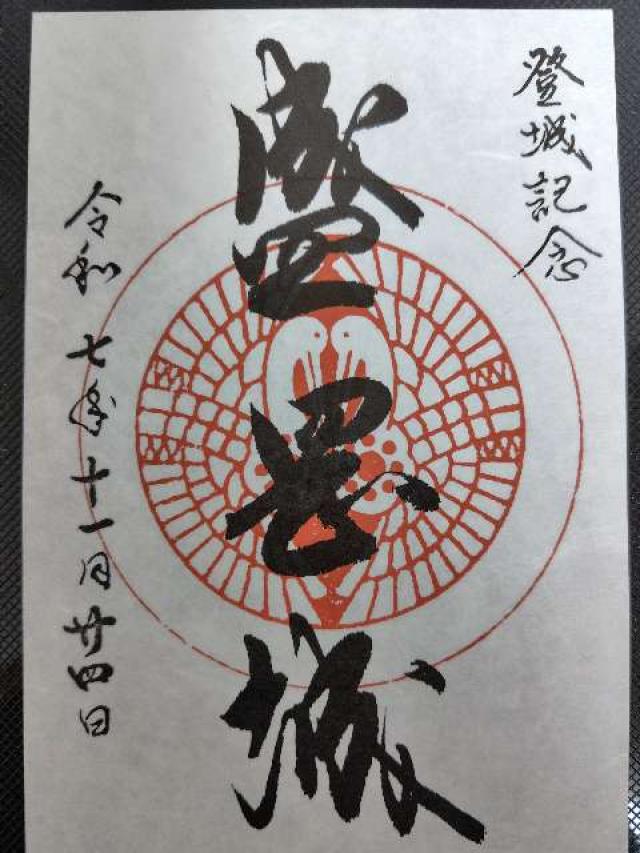 登城記念
盛岡城
令和七年十一月廿四日